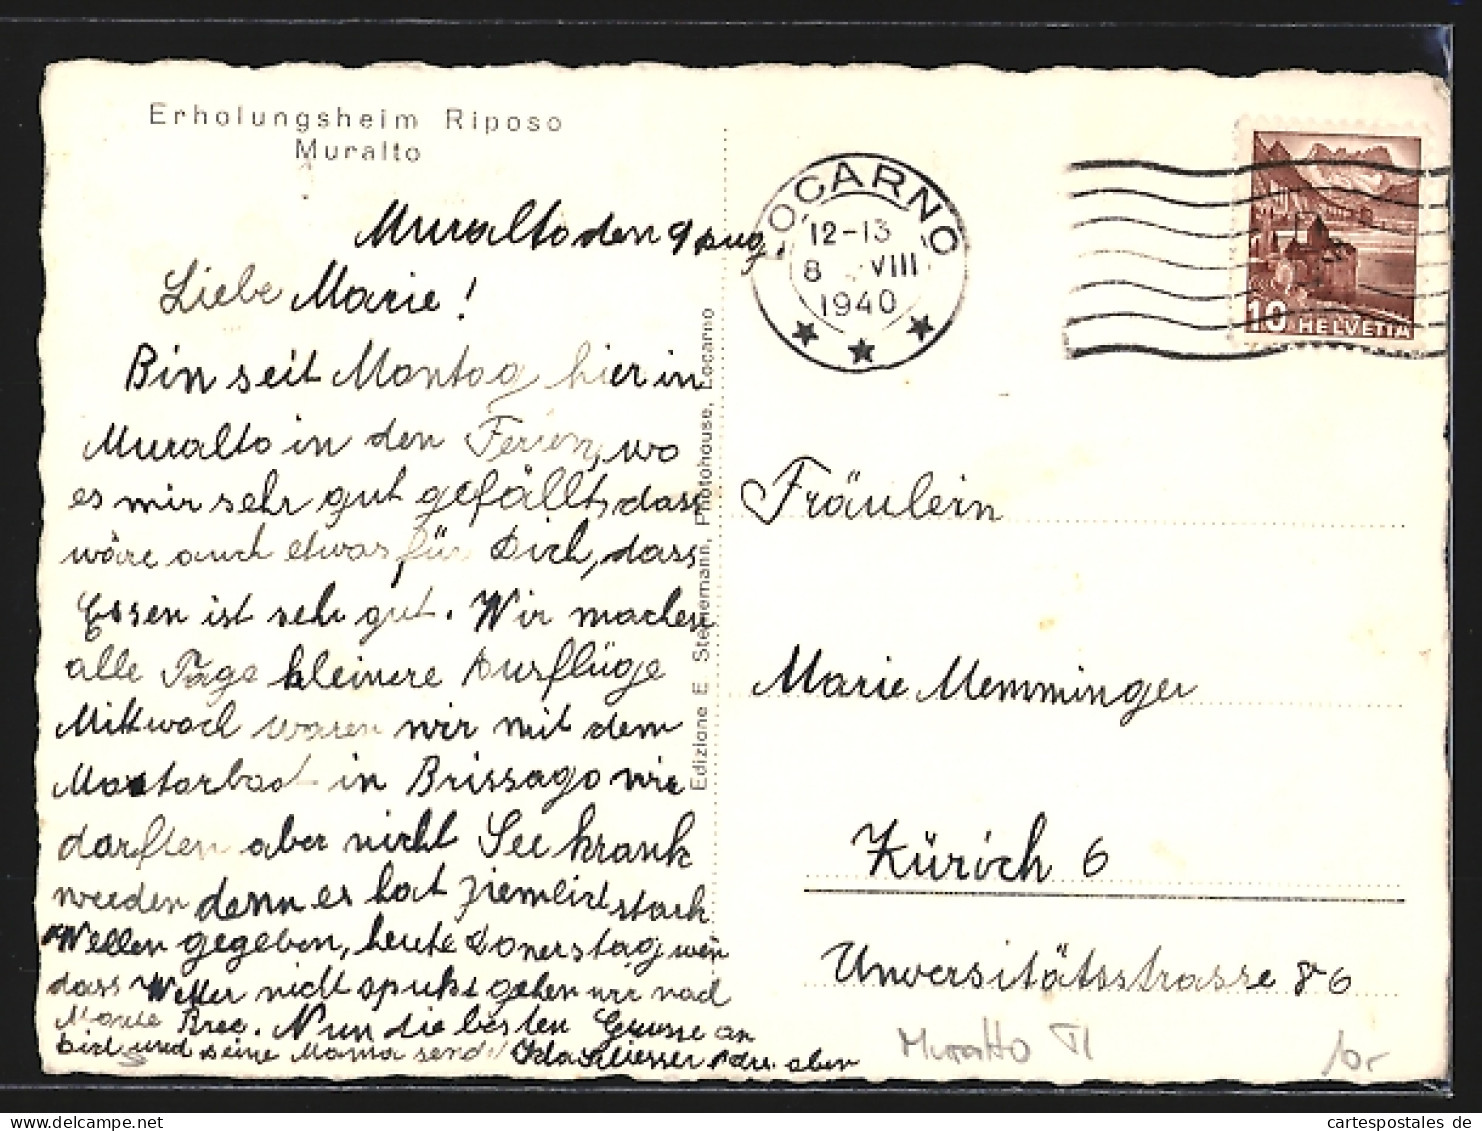 Erholungsheim Riposo
Muralto
Muralto den 9 aug.
Liebe Marie!
Bin seit Montag hier in
Muralto in den Ferien, wo
es mir sehr gut gefällt, dass
wäre auch etwas für Dich, dass
Essen ist sehr gut. Wir machen
alle Tage kleinere Ausflüge
Mittwoch waren wir mit dem
Motorboot in Brissago wir
darften aber nicht See krank
werden denn es hat ziemlich stark
Wellen gegeben, heute Donerstag wen
dass Wetter nicht spukt gehen wir nach
Monte Bree. Nun die besten Grüsse an
dich und deine Mama sendet Ida Schliesser Adr. oben
Edizione E. Steinemann, Photohouse, Locarno
LOCARNO
12-13
8 VIII
1940
10 HELVETIA
Fräulein
Marie Memminger
Zürich 6
Unversitätsstrasse 86
Muralto TI
cartespostales de